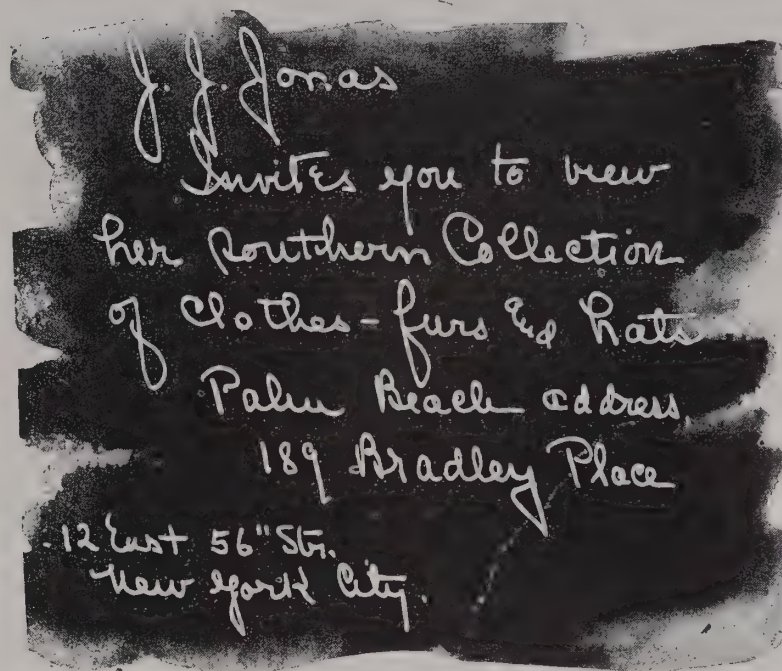 J. J. Jonas
Invites you to view
her Southern Collection
of Clothes - furs and hats
Palm Beach address,
189 Bradley Place
12 East 56" Str.
New York City.